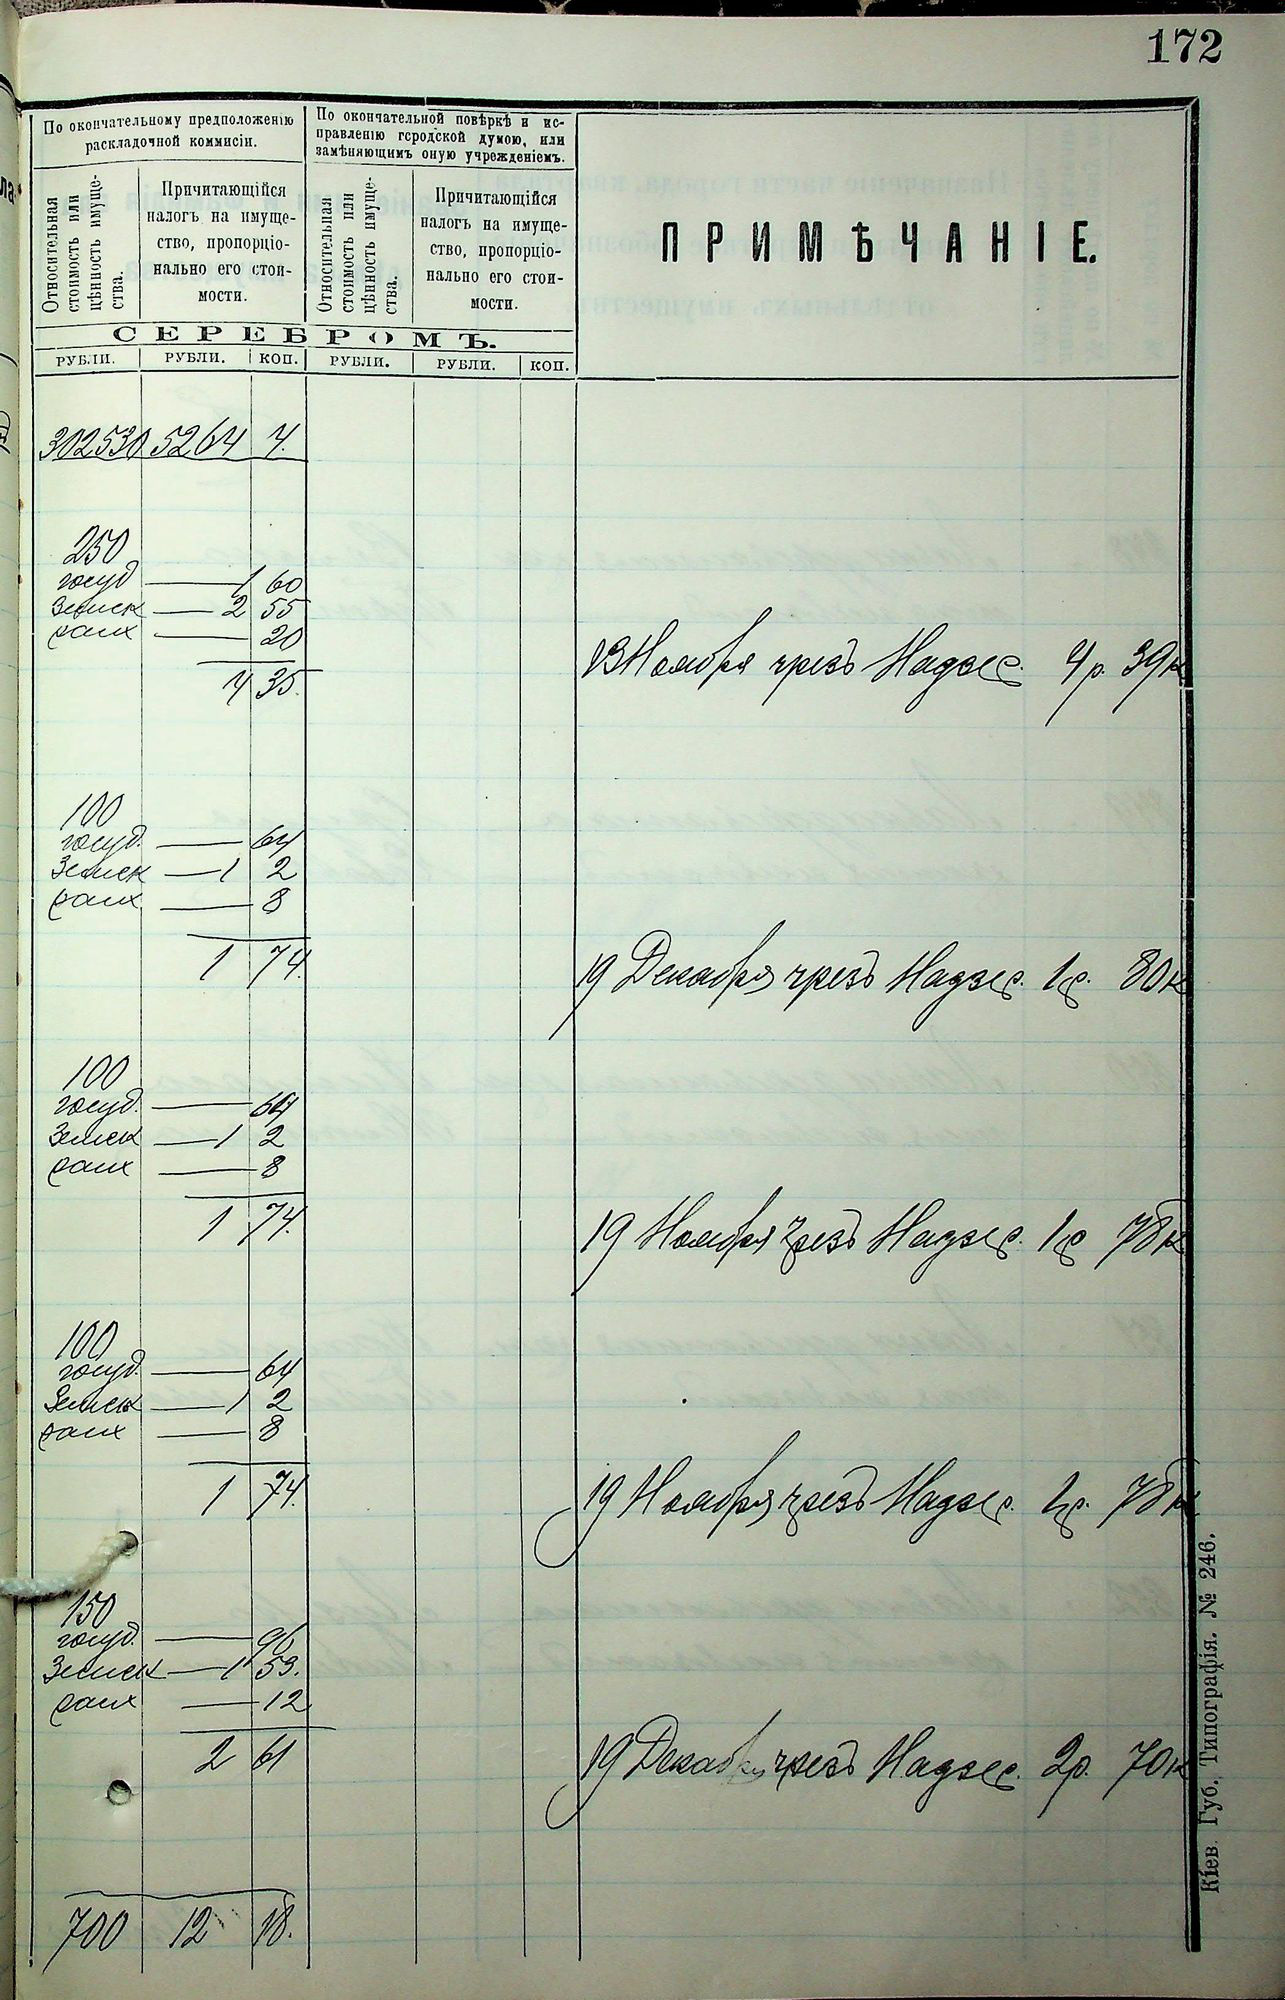 172
По окончательному предположенію
раскладочной коммисіи.
По окончательной повѣркѣ и ис-
правленію городской думою, или
замѣняющимъ оную учрежденіемъ.
Относительная
стоимость или
цѣнность имуще-
ства.
Причитающійся
налогъ на имуще-
ство, пропорціо-
нально его стои-
мости.
Относительная
стоимость или
цѣнность имуще-
ства.
Причитающійся
налогъ на имуще-
ство, пропорціо-
нально его стои-
мости.
ПРИМѢЧАНІЕ.
СЕРЕБРОМЪ.
РУБЛИ. РУБЛИ. КОП. РУБЛИ. РУБЛИ. КОП.
302530 5264 4.
250
госуд 1 60
Земск 2 55
20
4 35.
13 Ноября чрезъ Надзес. 4 р. 39 к
100
госуд. 64
Земск 1 2
8
1 74.
19 Декабря чрезъ Надзес. 1 р. 80 к
100
госуд. 64
Земск 1 2
8
1 74.
19 Ноября чрезъ Надзес. 1 р 78 к
100
госуд. 64
Земск 1 2
8
1 74.
19 Ноября чрезъ Надзес. 1 р. 78 к
150
госуд. 96
Земск 1 53.
12
2 61
19 Декабря чрезъ Надзес. 2 р. 70 к
700 12 18.
Кіев. Губ. Типографія. № 246.